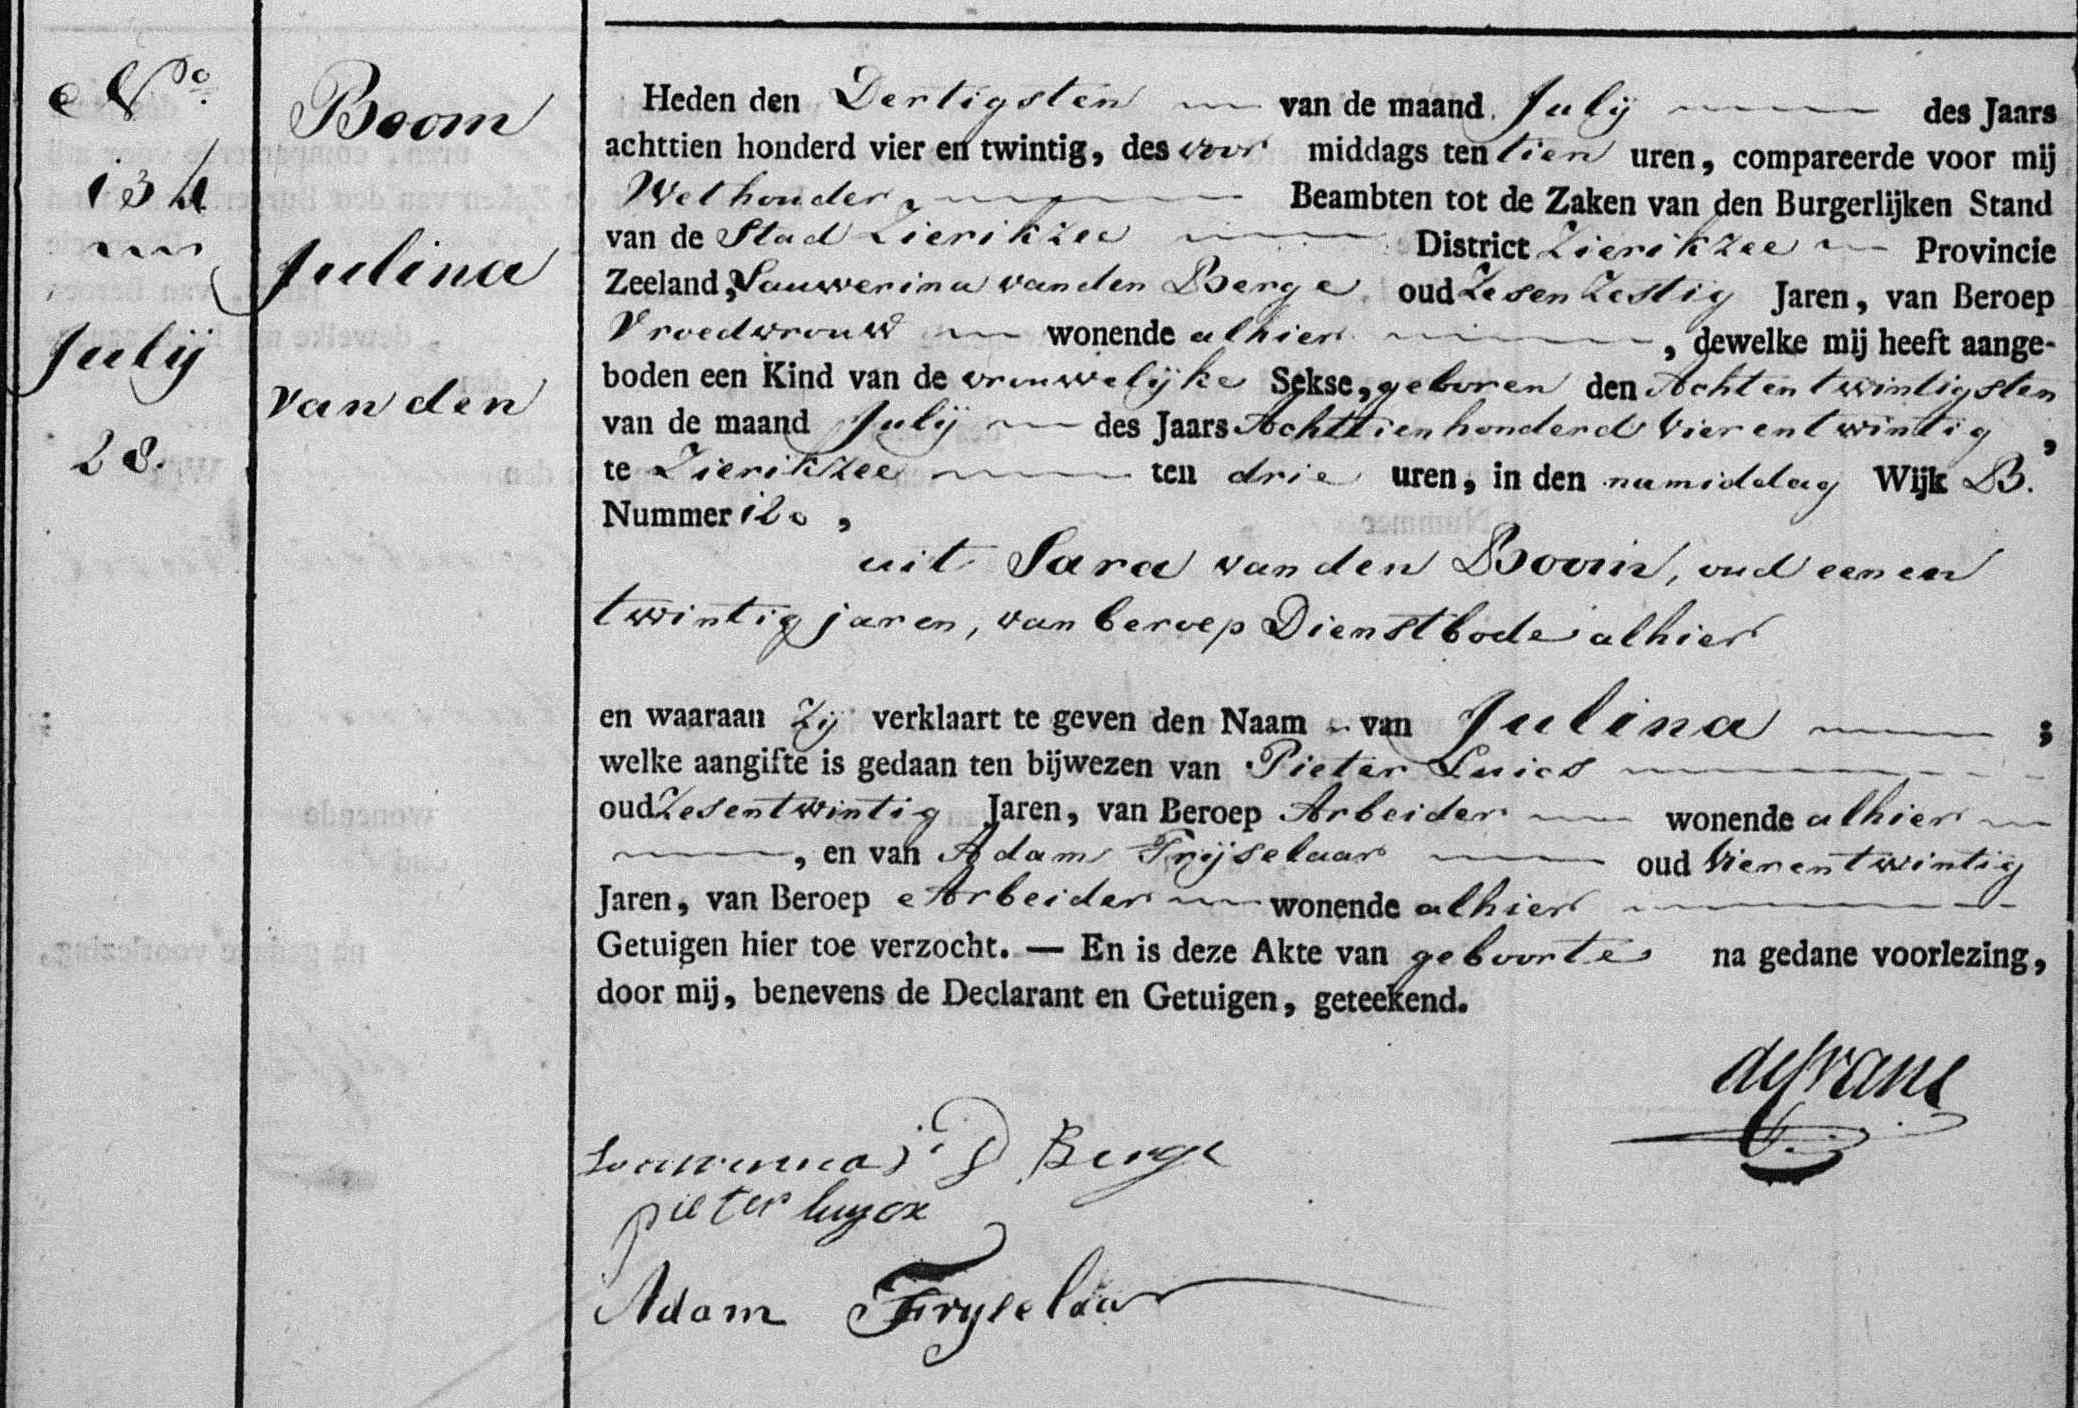 No.
134
Julij
28.
Boom
Julina
van den
Heden den Dertigsten van de maand July des Jaars
achttien honderd vier en twintig, des voor middags ten tien uren, compareerde voor mij
Wethouder Beambten tot de Zaken van den Burgerlijken Stand
van de Stad Zierikzee District Zierikzee Provincie
Zeeland, Lauwerina van den Berge oud Zesenzestig Jaren, van Beroep
Vroedvrouw wonende alhier, dewelke mij heeft aange-
boden een Kind van de vrouwelijke Sekse, geboren den Achtentwintigsten
van de maand Julij des Jaars Achttienhonderd Vierentwintig,
te Zierikzee ten drie uren, in den namiddag Wijk B.
Nummer 120,
uit Sara van den Boom, oud eenen
twintig jaren, van beroep Dienstbode alhier
en waaraan Zij verklaart te geven den Naam van Julina;
welke aangifte is gedaan ten bijwezen van Pieter Luics
oud Zesentwintig Jaren, van Beroep Arbeider wonende alhier
, en van Adam Frijselaar oud Vierentwintig
Jaren, van Beroep Arbeider wonende alhier
Getuigen hier toe verzocht. — En is deze Akte van geboorte na gedane voorlezing,
door mij, benevens de Declarant en Getuigen, geteekend.
Berge
pieter luyex
Adam Fryselaar